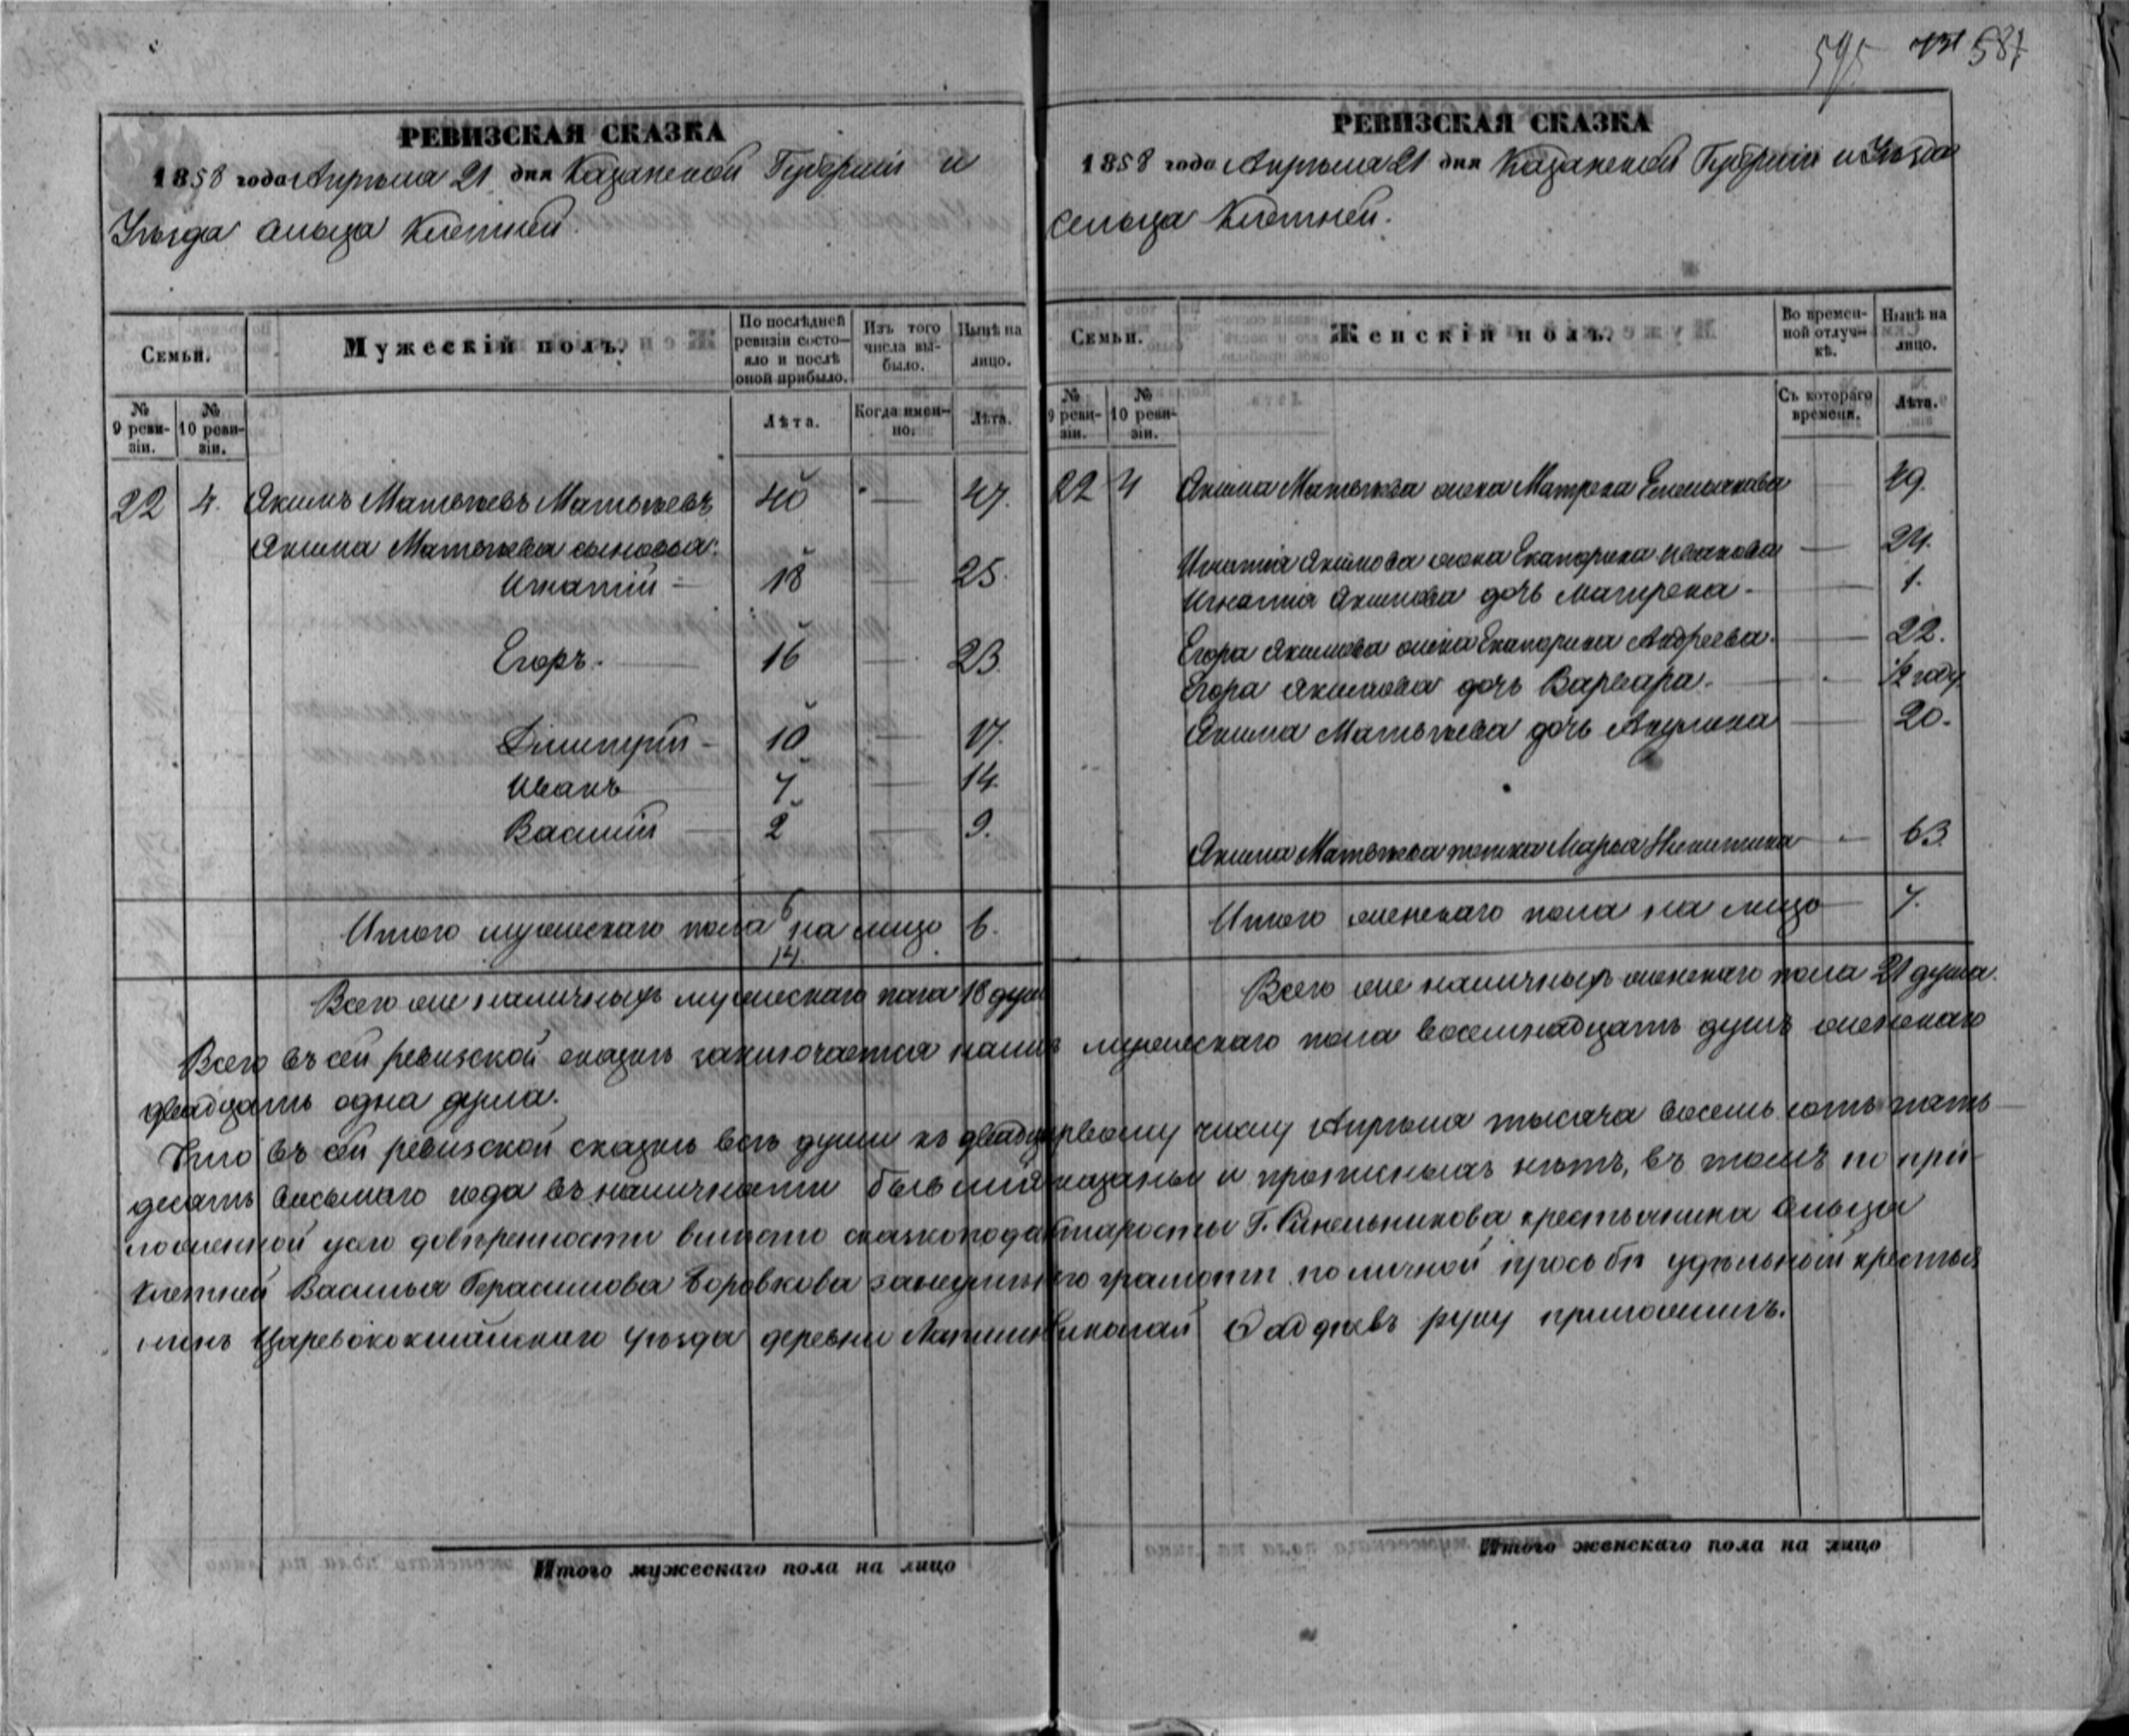 595 731 587
РЕВИЗСКАЯ СКАЗКА
1858 года Апрѣля 21 дня Казанской Губерніи и
Уѣзда сельца Клетней.
Семьи.
Мужескій полъ.
По послѣдней ревизіи состо-яло и послѣ оной прибыло.
Изъ того числа вы-было.
Нынѣ на лицо.
№ 9 реви-зіи.
№ 10 реви-зіи.
Лѣта.
Когда имен-но.
Лѣта.
22 4. Якимъ Матвѣевъ Матвѣевъ 40 — 47.
Якима Матвѣева сыновья:
Игнатій 18 — 25.
Егоръ. 16 — 23.
Дмитрій 10 — 17.
Иванъ 7 — 14.
Василій 2 — 9.
Итого мужескаго пола 6 на лицо 6.
14.
Всего же наличныхъ мужескаго пола 18 душъ
РЕВИЗСКАЯ СКАЗКА
1858 года Апрѣля 21 дня Казанской Губерніи и Уѣзда
сельца Клетней.
Семьи.
Женскій полъ.
Во времен-ной отлуч-кѣ.
Нынѣ на лицо.
№ 9 реви-зіи.
№ 10 реви-зіи.
Съ котораго времени.
Лѣта.
22 4 Якима Матвѣева жена Матрена Емельянова — 49.
Игнатія Якимова жена Екатерина Иванова — 24.
Игнатія Якимова дочь Матрена — 1.
Егора Якимова жена Екатерина Андреева — 22.
Егора Якимова дочь Варвара — 1/2 год.
Якима Матвѣева дочь Акулина — 20.
Якима Матвѣева тетка Марья Никитина — 63.
Итого женскаго пола на лицо 7.
Всего же наличныхъ женскаго пола 21 душа.
Всего въ сей ревизской сказкѣ заключается налицо мужескаго пола восемнадцать душъ женскаго
двадцать одна душа.
Что въ сей ревизской сказкѣ всѣ души къ двадцать первому числу Апрѣля тысяча восемь сотъ пять
десятъ восьмаго года въ наличности бывшія показаны и прописныхъ нѣтъ, въ томъ по при
ложенной у сего довѣренности вмѣсто сказкоподателя старосты Г. Синельникова крестьянина сельца
Клетней Василья Герасимова Боровкова за неумѣніемъ грамотѣ по личной просьбѣ удѣльный крестья
нинъ Царевококшайскаго уѣзда деревни Николай руку приложилъ.
Итого мужескаго пола на лицо
Итого женскаго пола на лицо